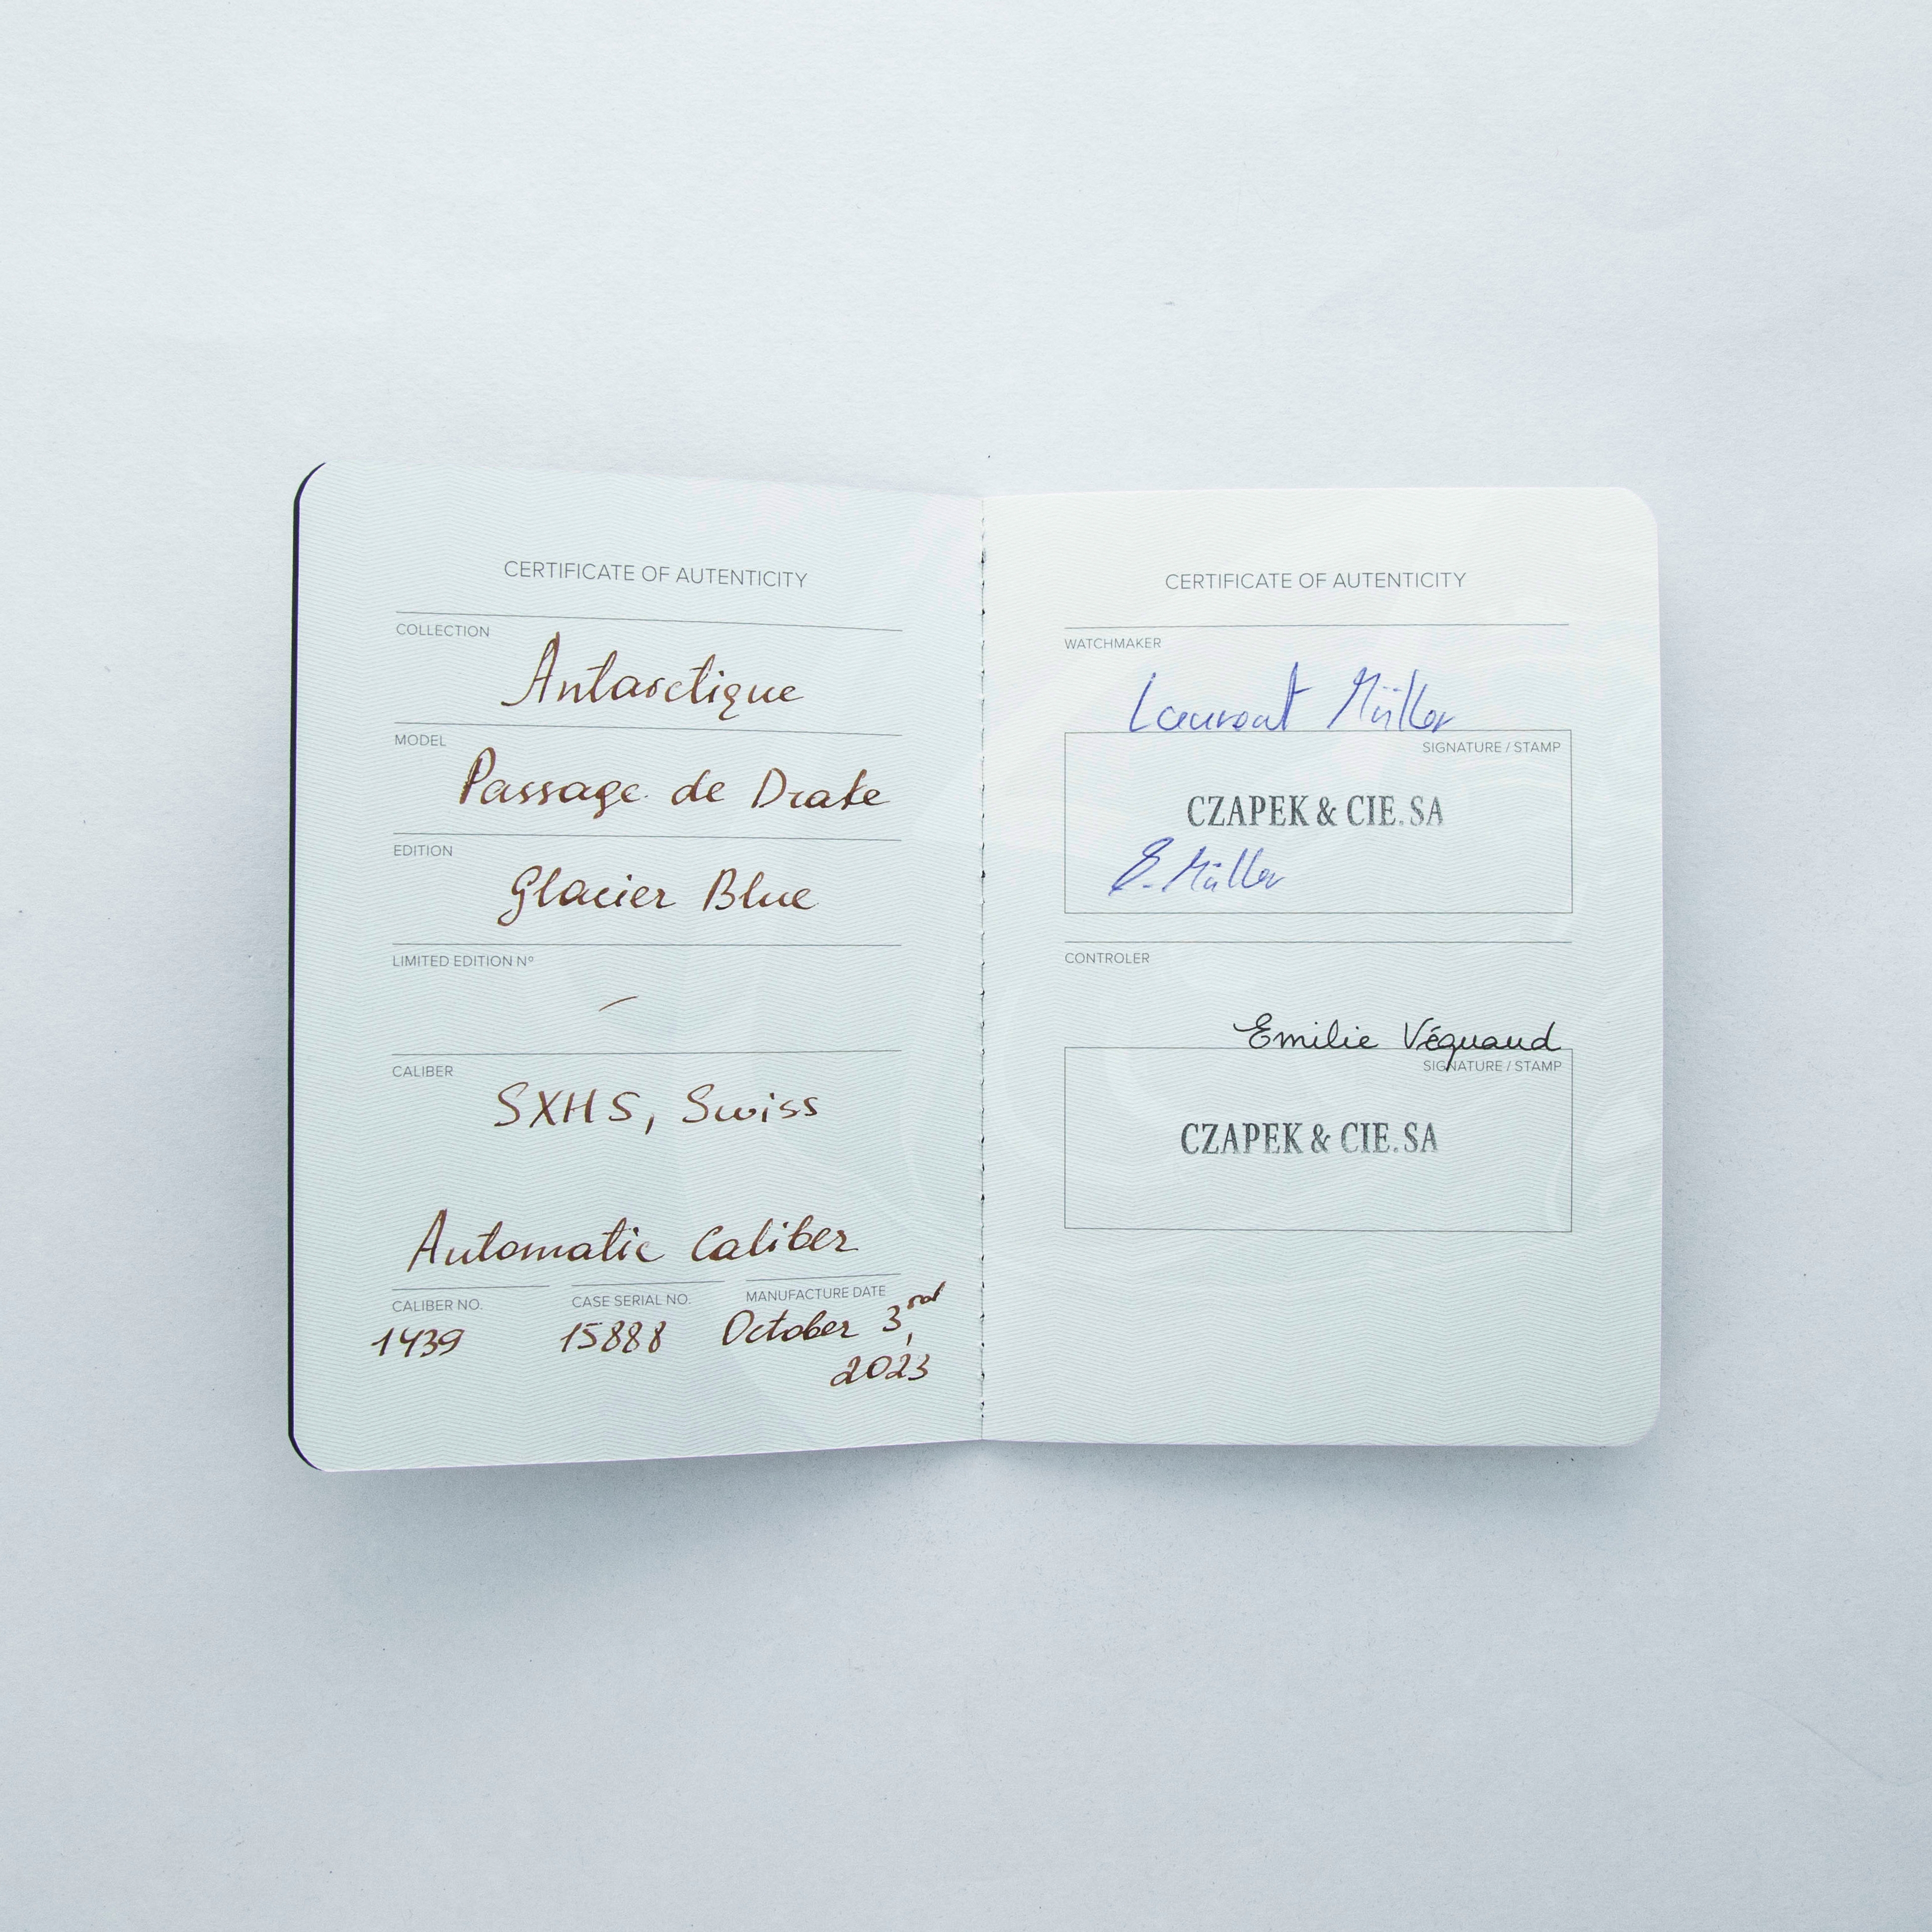 CERTIFICATE OF AUTENTICITY
COLLECTION
Antarctique
MODEL
Passage de Drake
EDITION
Glacier Blue
LIMITED EDITION Nº
–
CALIBER
SXH5, Swiss
Automatic Caliber
CALIBER NO.
1439
CASE SERIAL NO.
15888
MANUFACTURE DATE
October 3rd,
2023
CERTIFICATE OF AUTENTICITY
WATCHMAKER
Laurent Müller
SIGNATURE / STAMP
CZAPEK & CIE. SA
Müller
CONTROLER
Emilie
SIGNATURE / STAMP
CZAPEK & CIE. SA